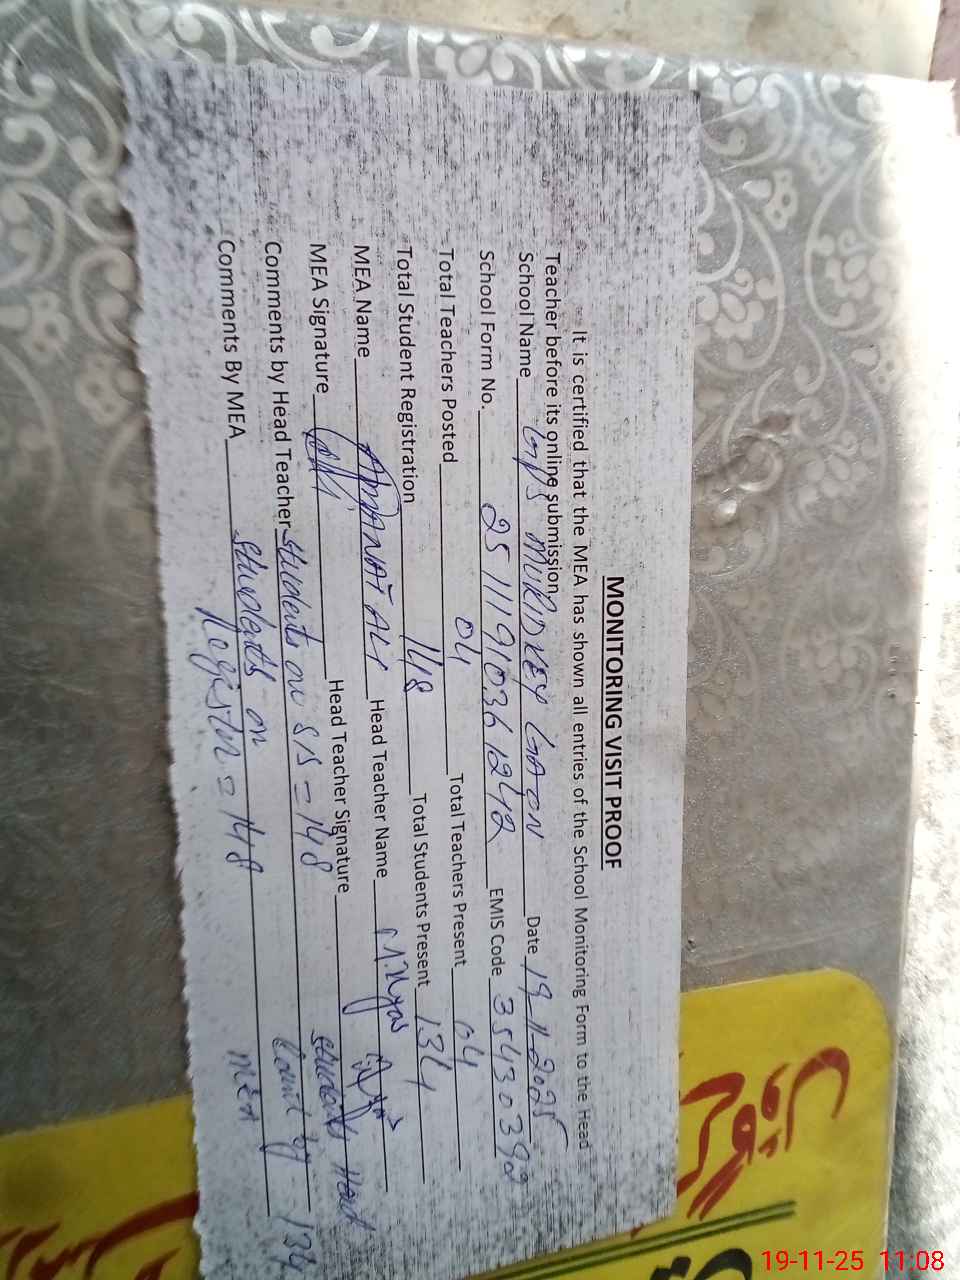 MONITORING VISIT PROOF
It is certified that the MEA has shown all entries of the School Monitoring Form to the Head
Teacher before its online submission.
School Name GPS MURIDKEY GAON Date 19.11.2025
School Form No. 25111910361242 EMIS Code 35430392
Total Teachers Posted 04 Total Teachers Present 04
Total Student Registration 148 Total Students Present 134
MEA Name AMANAT ALI Head Teacher Name M.Ilyas
MEA Signature Head Teacher Signature
Comments by Head Teacher students on SIS = 148 students Head
Count by MEA = 134
Comments By MEA students on Register = 148
19-11-25 11:08